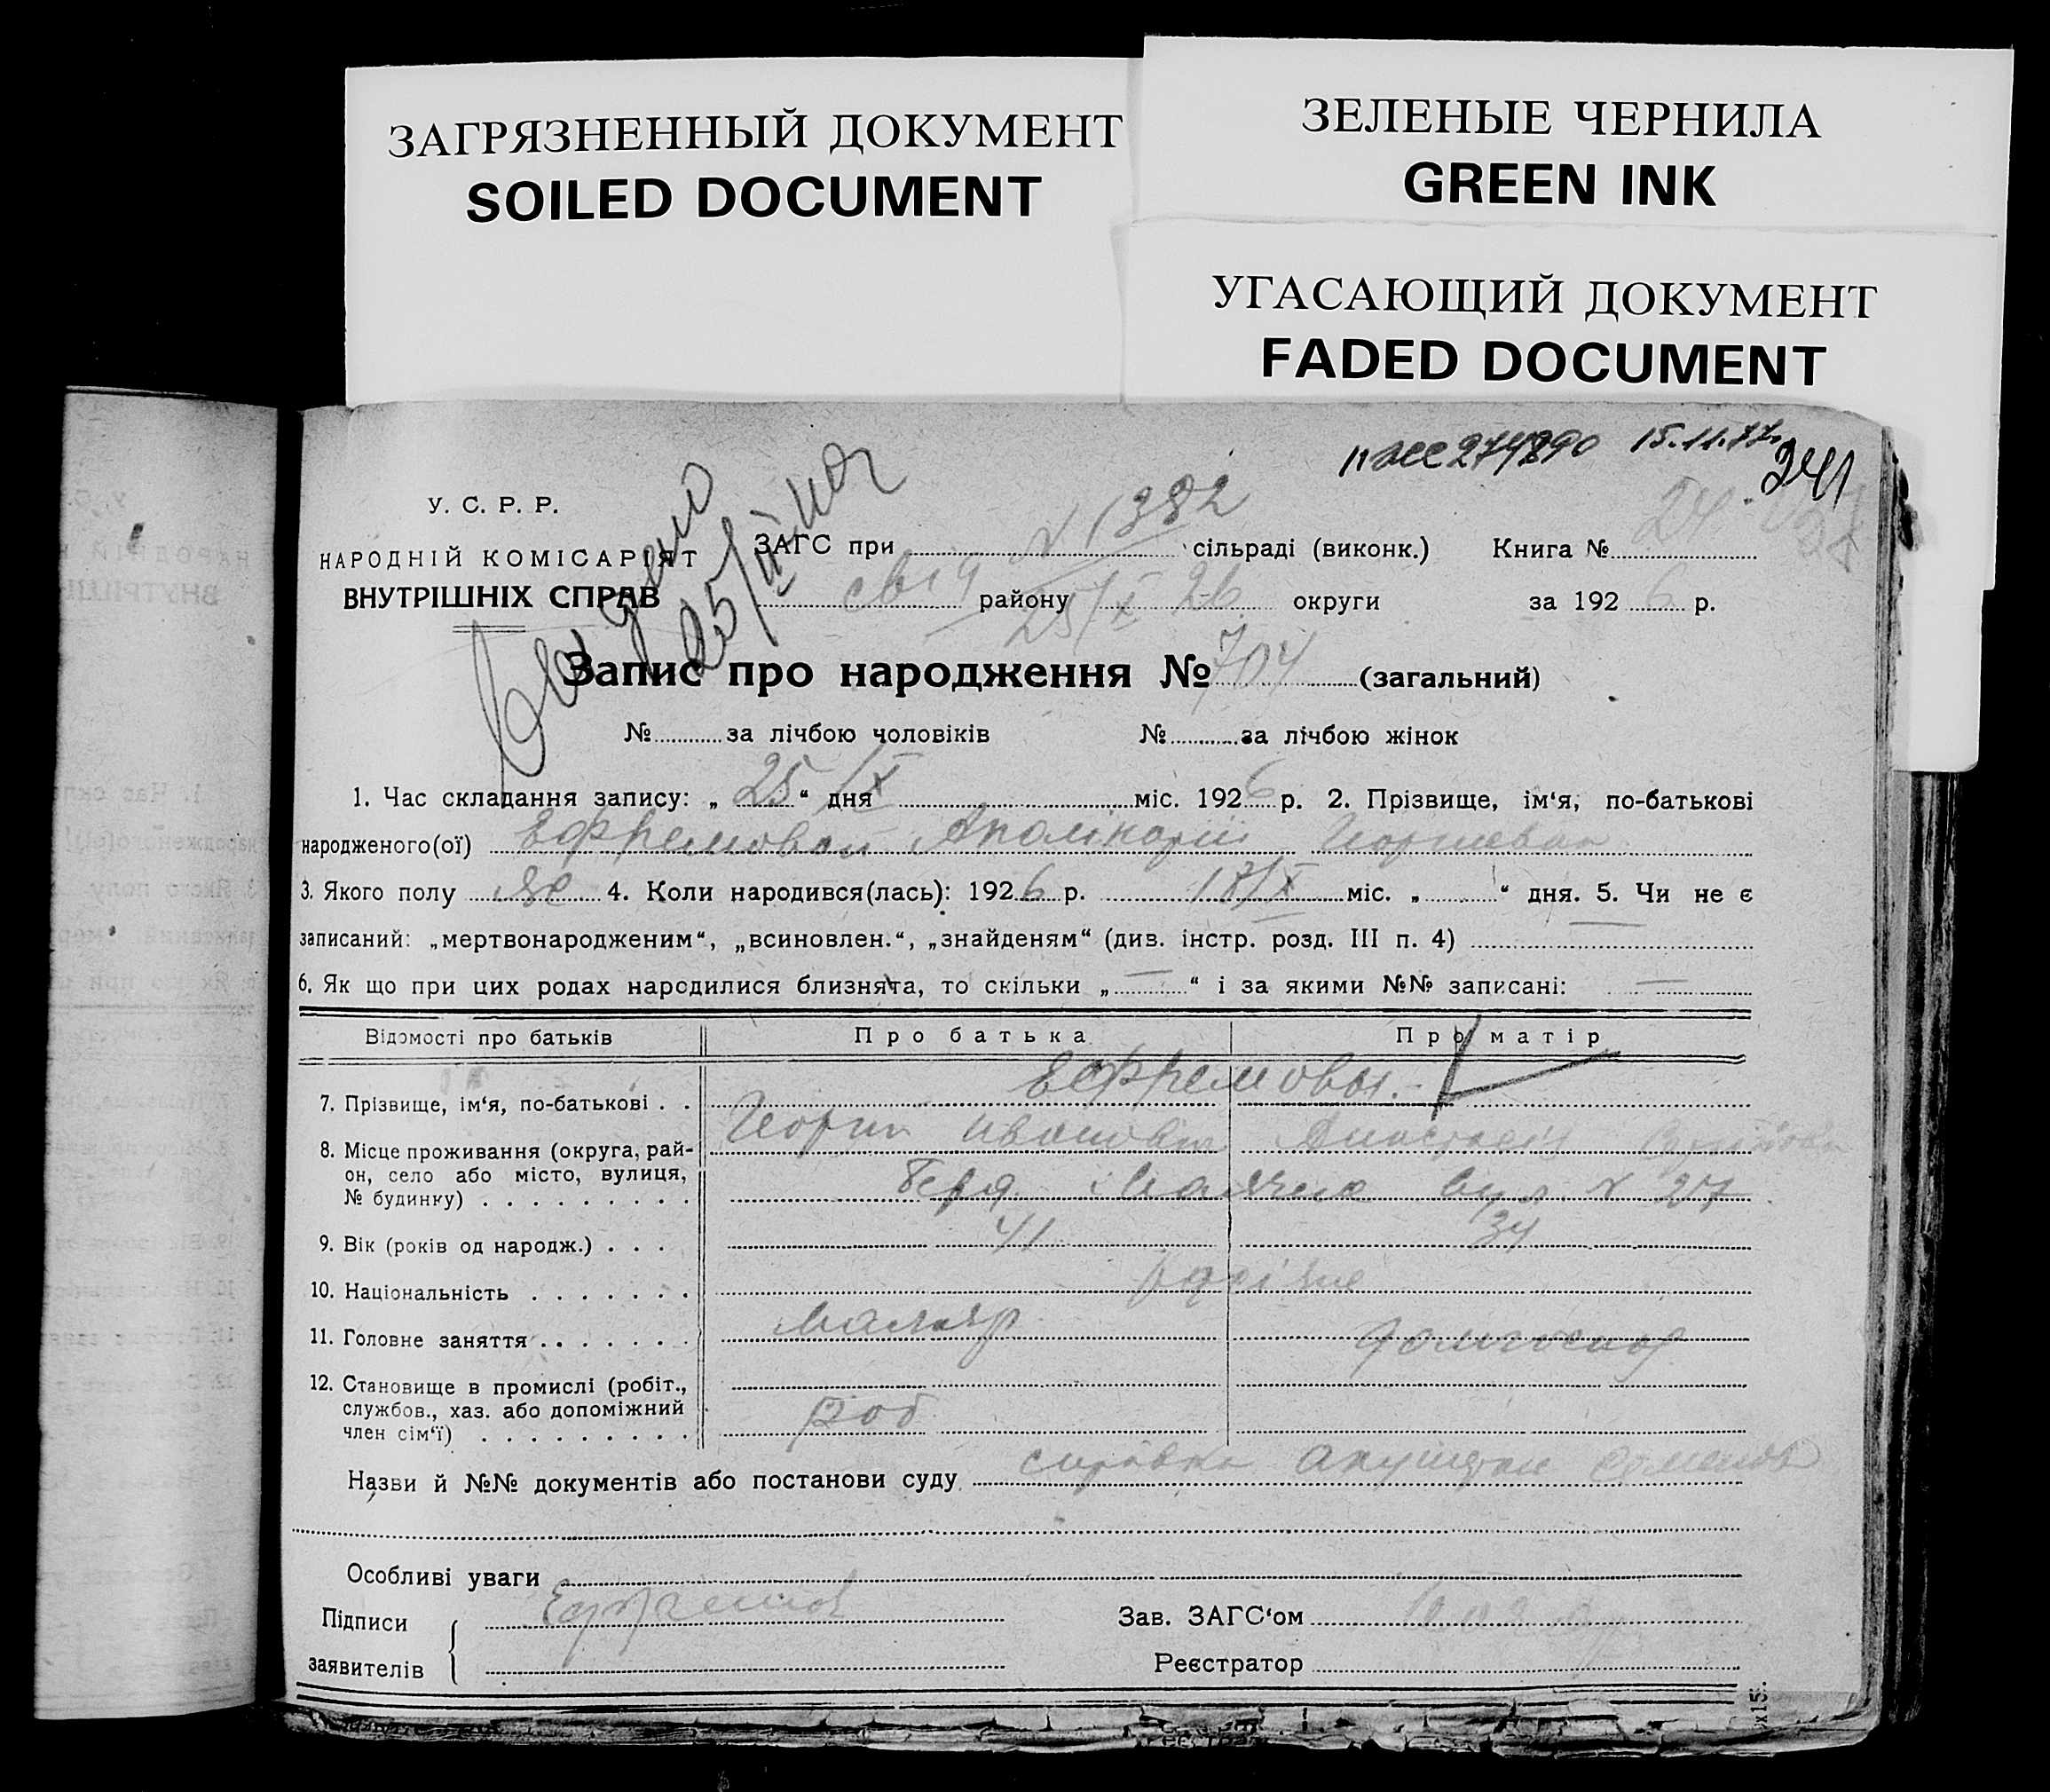 ЗАГРЯЗНЕННЫЙ ДОКУМЕНТ
SOILED DOCUMENT
ЗЕЛЕНЫЕ ЧЕРНИЛА
GREEN INK
УГАСАЮЩИЙ ДОКУМЕНТ
FADED DOCUMENT
274890 15.11.77
241
У. С. Р. Р.
НАРОДНІЙ КОМІСАРІЯТ
ВНУТРІШНІХ СПРАВ
N 1382
ЗАГС при сільраді (виконк.) Книга № 24
району округи за 192 6 р.
25/X 26
Запис про народження № 704 (загальний)
№ за лічбою чоловіків № за лічбою жінок
1. Час складання запису: „ 25 “ дня /X міс. 192 6 р. 2. Прізвище, ім‘я, по-батькові
народженого(ої) Ефремовой Аполінарії
3. Якого полу же 4. Коли народився(лась): 192 6 р. 17/X міс. „ “ дня. 5. Чи не є
записаний: „мертвонародженим“, „всиновлен.“, „знайденям“ (див. інстр. розд. III п. 4) —
6. Як що при цих родах народилися близнята, то скільки „ — “ і за якими №№ записані: —
Відомості про батьків Про батька Про матір
Ефремовы.
7. Прізвище, ім‘я, по-батькові . .
Георгий Иванович Анастасія
8. Місце проживання (округа, рай-
он, село або місто, вулиця,
№ будинку) . . . . . . . . . вул. N 27
9. Вік (років од народж.) . . . 41 34
10. Національність . . . . . . .
11. Головне заняття . . . . . . . маляр домгоспод
12. Становище в промислі (робіт.,
службов., хаз. або допоміжний
член сім‘ї) . . . . . . . . . роб
Назви й №№ документів або постанови суду справка акушерки
Особливі уваги
Підписи Ефремов Зав. ЗАГС‘ом
заявителів Реєстратор